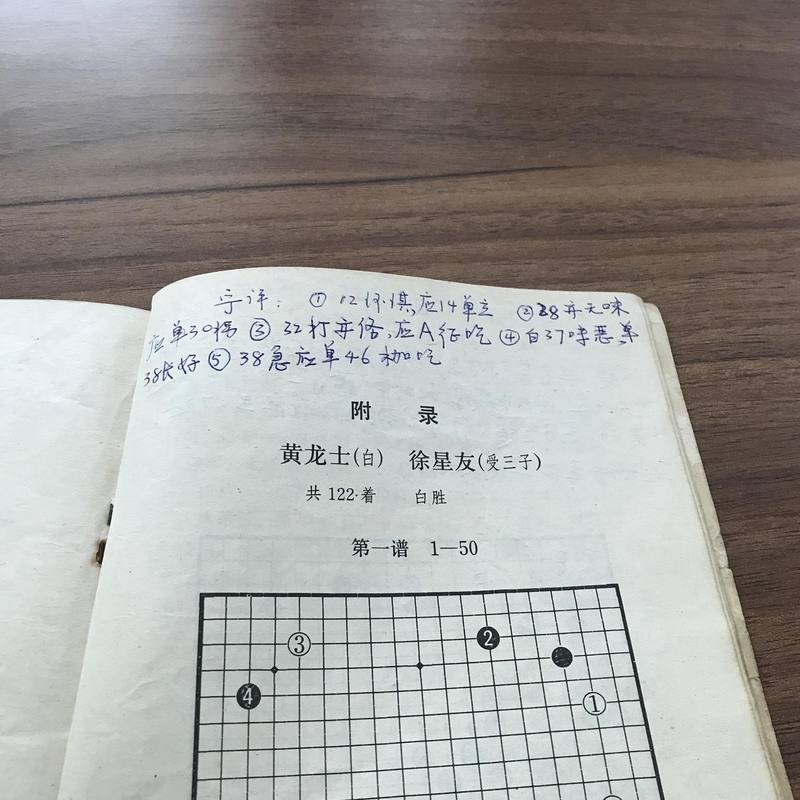 评：① 12 棋应14单立 ②28亦无味
应单30 ③ 32打亦俗，应A征吃 ④白37味恶单
38长好 ⑤ 38急应单46枷吃
附 录
黄龙士(白) 徐星友(受三子)
共 122·着 白胜
第一谱 1—50
③ 2
4 ①